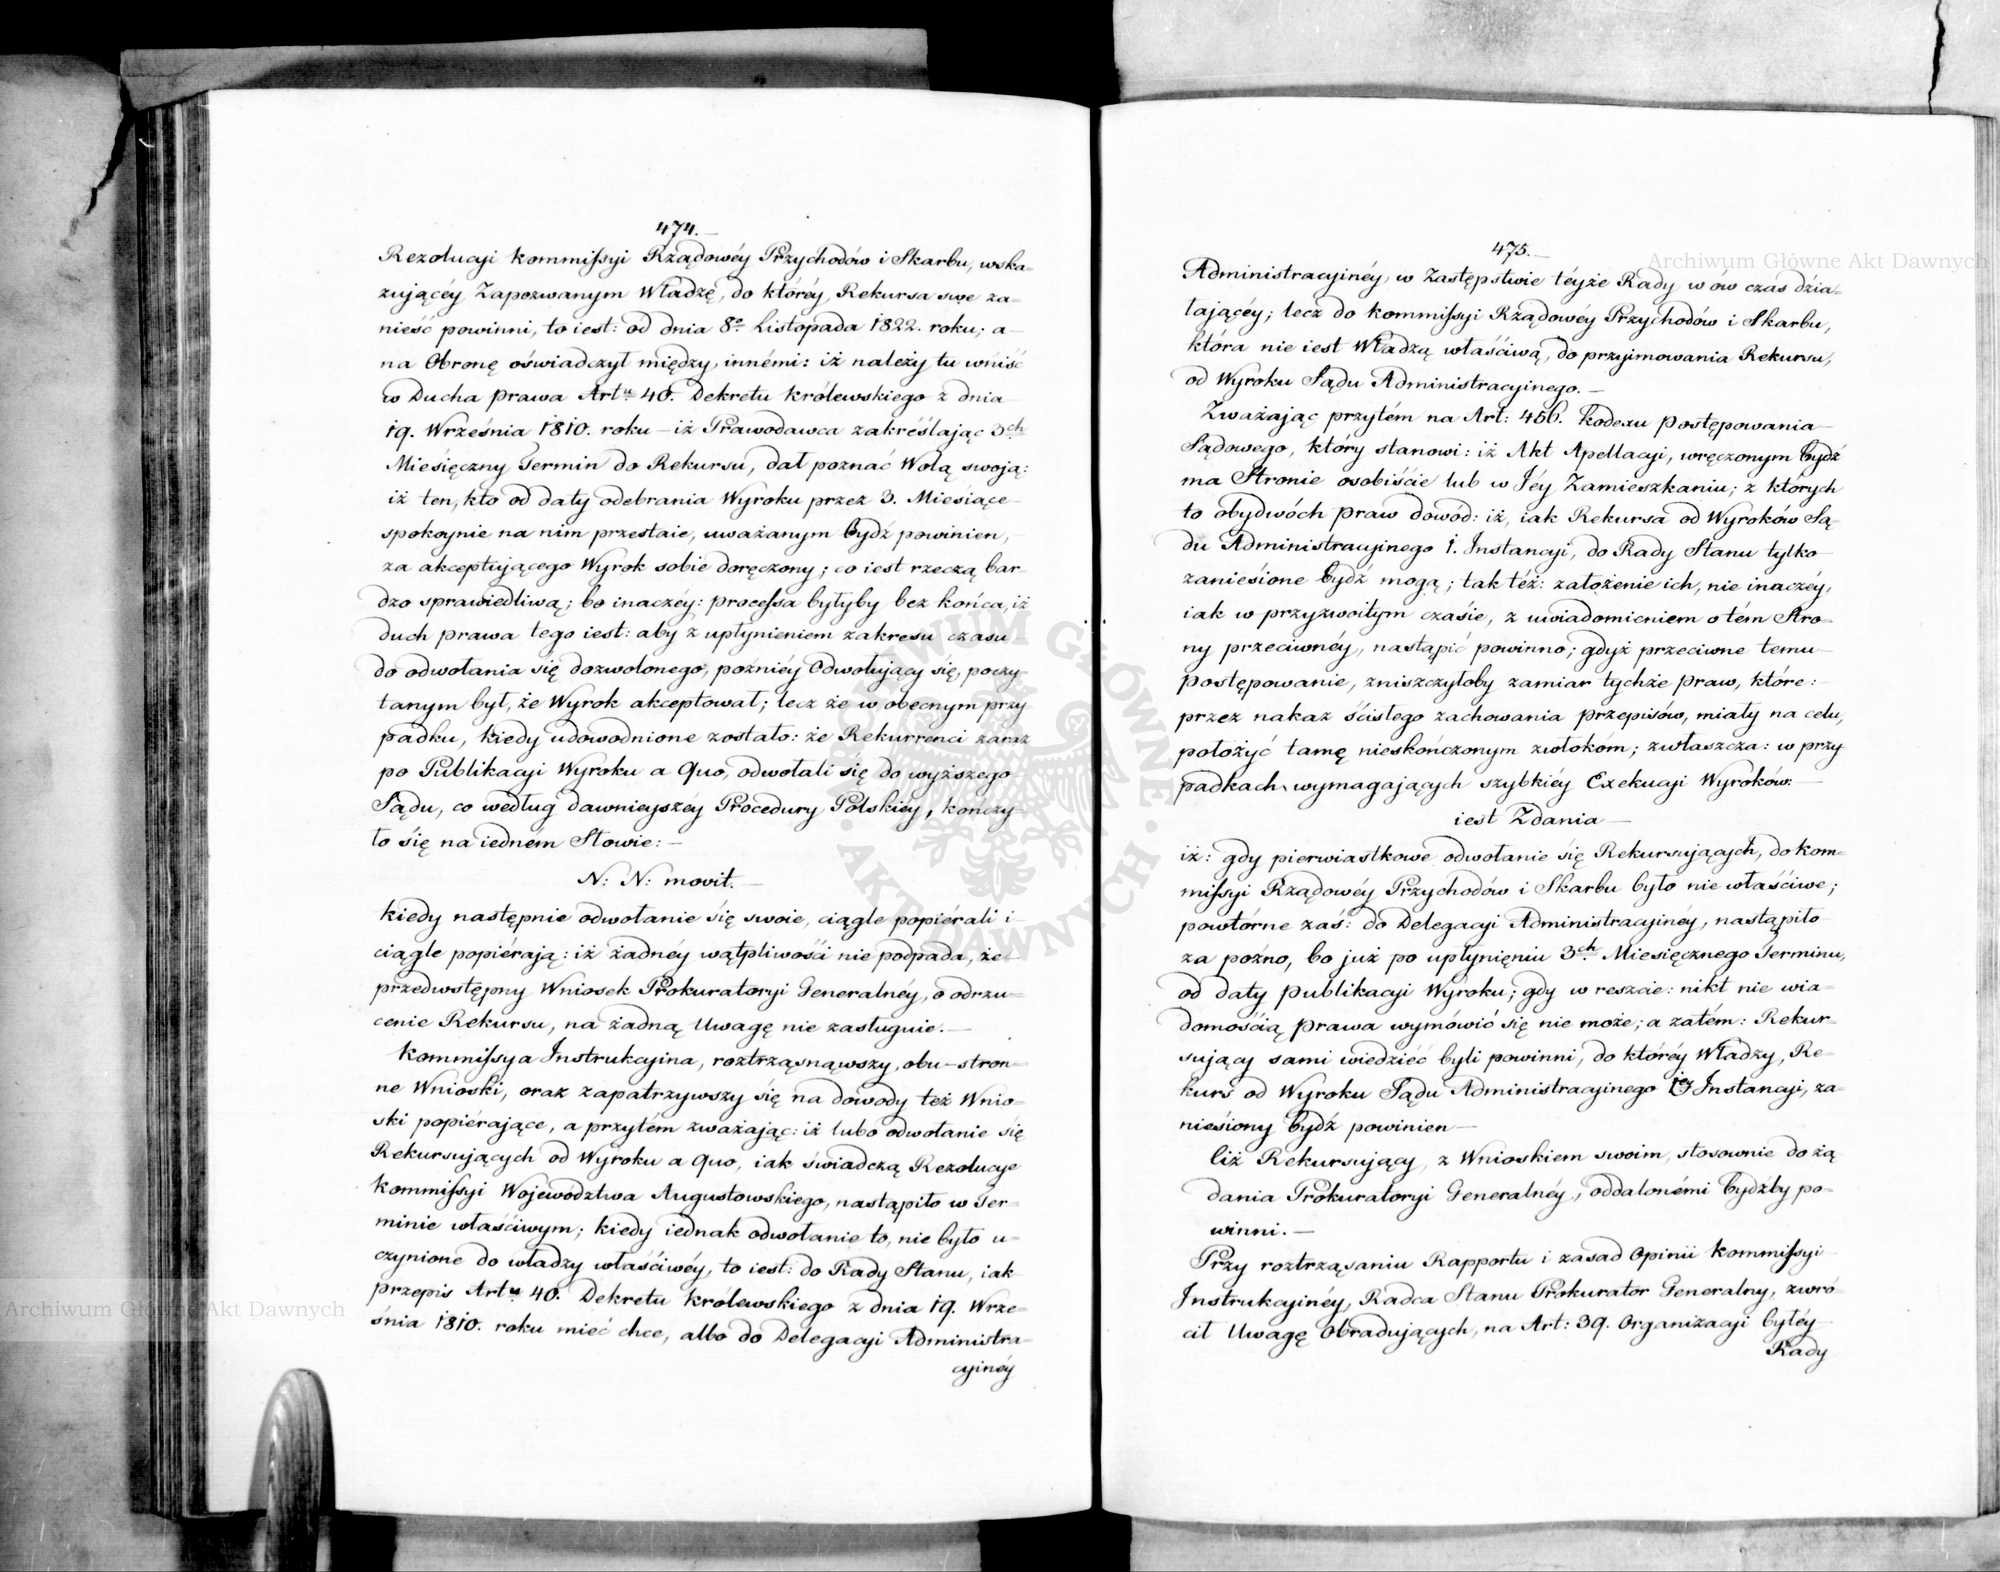 474.
Rezolucyi kommissyi Rządowéy Przychodów i Skarbu, wska-
zującéy Zapozwanym Władzę, do któréy Rekursa swe za-
nieść powinni, to iest: od dnia 8º Listopada 1822. roku; a
na Obronę oświadczył między innémi: iż należy tu wniść
w Ducha prawa Artu 40. Dekretu królewskiego z dnia
19. Września 1810. roku – iż Prawodawca zakréślając 3ch
Miesięczny Termin do Rekursu, dał poznać Wolą swoją:
iż ten, kto od daty odebrania Wyroku przez 3. Miesiące
spokoynie na nim przestaie, uważanym bydź powinien,
za akceptującego Wyrok sobie doręczony; co iest rzeczą bar-
dzo sprawiedliwą; bo inaczéy: processa byłyby bez końca, iż
duch prawa tego iest: aby z upłynieniem zakresu czasu
do odwołania się dozwolonego, poźniéy Odwołujący się, poczy-
tanym był, że Wyrok akceptował; lecz że w obecnym przy-
padku, kiedy udowodnione zostało: że Rekurrenci zaraz
po Publikacyi Wyroku a Quo, odwołali się do wyższego
Sądu, co według dawnieyszéy Procedury Polskiey, kończy-
ło się na iedném Słowie: –
N: N: movit. –
kiedy następnie odwołanie się swoie, ciągle popiérali i
ciągle popiérają: iż żadnéy wątpliwości nie podpada, że
przedwstępny Wniosek Prokuratoryi Generalnéy, o odrzu-
cenie Rekursu, na żadną Uwagę nie zasługuie. –
Kommissya Instrukcyina, roztrząsnąwszy, obu-stron-
ne Wnioski, oraz zapatrzywszy się na dowody też Wnio-
ski popiérające, a przytém zważając: iż lubo odwołanie się
Rekursujących od Wyroku a Quo, iak świadczą Rezolucye
Kommissyi Województwa Augustowskiego, nastąpiło w Ter-
minie właściwym; kiedy iednak odwołanie to, nie było u-
czynione do władzy właściwéy, to iest: do Rady Stanu, iak
przepis Artu 40. Dekretu Królewskiego z dnia 19. Wrze-
śnia 1810. roku mieć chce, albo do Delegacyi Administra-
cyinéy
475.
Administracyinéy w Zastępstwie téyże Rady w ów czas dzia-
łającéy; lecz do kommissyi Rządowéy Przychodów i Skarbu,
która nie iest Władzą właściwą, do przyimowania Rekursu,
od Wyroku Sądu Administracyinego. –
Zważając przytém na Art: 456. kodexu Postępowania
Sądowego, który stanowi: iż Akt Apellacyi, wręczonym bydź
ma Stronie osobiście lub w Jéy Zamieszkaniu; z których
to obydwóch praw dowód: iż, iak Rekursa od Wyroków Są-
du Administracyinego 1. Instancyi, do Rady Stanu tylko
zaniesione bydź mogą; tak téż: założenie ich, nie inaczéy,
iak w przyzwoitym czasie, z uwiadomieniem o tém Stro-
ny przeciwnéy, nastąpić powinno; gdyż przeciwne temu
postępowanie, zniszczyłoby zamiar tychże praw, które:
przez nakaz ścisłego zachowania przepisów, miały na celu,
położyć tamę nieskończonym zwłokóm; zwłaszcza: w przy-
padkach wymagających szybkiéy Exekucyi Wyroków. –
iest Zdania –
iż: gdy pierwiastkowe odwołanie się Rekursujących, do kom-
missyi Rządowéy Przychodów i Skarbu było nie właściwe;
powtórne zaś: do Delegacyi Administracyinéy, nastąpiło
za poźno, bo już po upłynięniu 3ch Miesięcznego Terminu,
od daty publikacyi Wyroku; gdy w reszcie: nikt nie wia-
domością prawa wymówić się nie może; a zatém: Rekur-
sujący sami wiedzieć byli powinni, do któréy Władzy, Re-
kurs od Wyroku Sądu Administracyinego 1éy Instancyi, za-
niesiony bydź powinien –
Ciż Rekursujący, z Wnioskiem swoim, stosownie do żą-
dania Prokuratoryi Generalnéy, oddalonémi bydźby po-
winni. –
Przy roztrząsaniu Rapportu i zasad Opinii Kommissyi
Instrukcyinéy, Radca Stanu Prokurator Generalny, zwró-
cił Uwagę Obradujących, na Art: 39. Organizacyi byłéy
Rady
Archiwum Główne Akt Dawnych
Archiwum Główne Akt Dawnych
ARCHIWUM GŁÓWNE AKT DAWNYCH